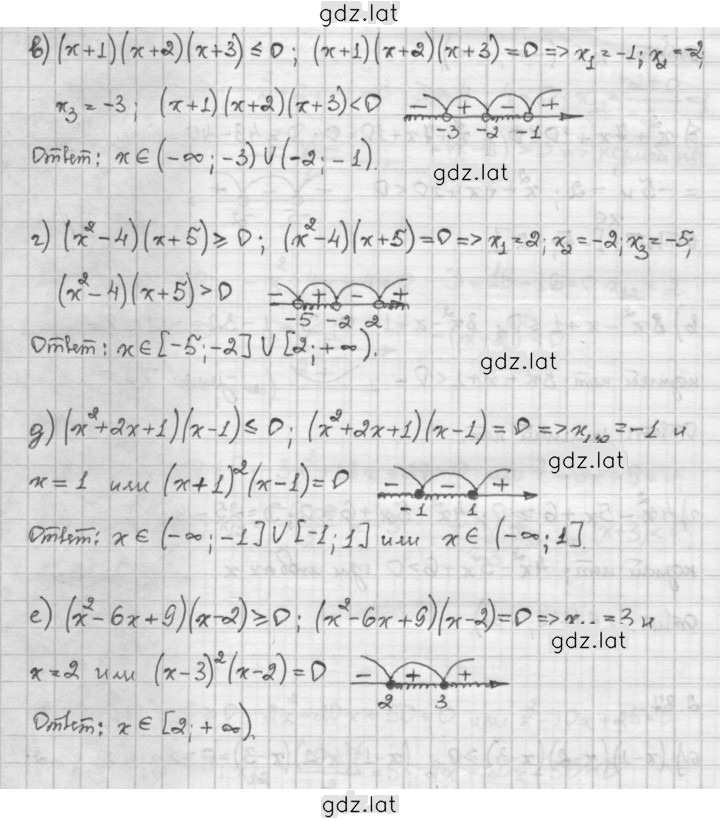 gdz.lat
в) (x+1)(x+2)(x+3) ≤ 0; (x+1)(x+2)(x+3) = 0 => x₁ = -1; x₂ = -2;
x₃ = -3; (x+1)(x+2)(x+3) < 0 - + - +
-3 -2 -1
Ответ: x ∈ (-∞; -3) ∪ (-2; -1).
gdz.lat
г) (x² - 4)(x+5) ≥ 0; (x² - 4)(x+5) = 0 => x₁ = 2; x₂ = -2; x₃ = -5;
(x² - 4)(x+5) > 0 - + - +
-5 -2 2
Ответ: x ∈ [-5; -2] ∪ [2; +∞).
gdz.lat
д) (x² + 2x + 1)(x-1) ≤ 0; (x² + 2x + 1)(x-1) = 0 => x₁,₂ = -1 и
gdz.lat
x = 1 или (x+1)²(x-1) = 0 - - +
-1 1
Ответ: x ∈ (-∞; -1] ∪ [-1; 1] или x ∈ (-∞; 1].
е) (x² - 6x + 9)(x-2) ≥ 0; (x² - 6x + 9)(x-2) = 0 => x = 3 и
gdz.lat
x = 2 или (x-3)²(x-2) = 0 - + +
2 3
Ответ: x ∈ [2; +∞).
gdz.lat